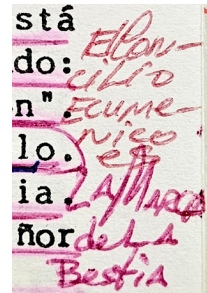 stá
do:
n".
lo.
ia.
ñor
El Con-
cilio
Ecume-
nico
es
LA MARCA
de LA
Bestia